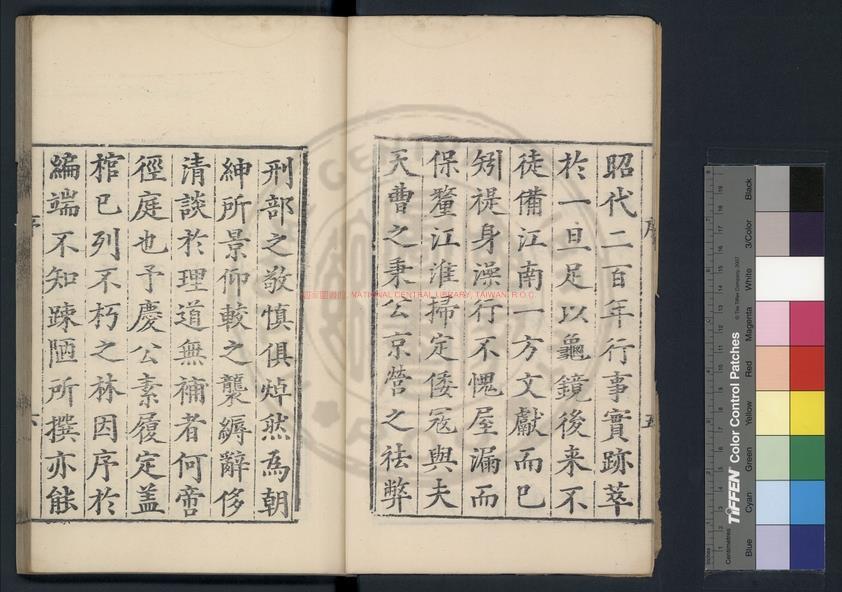 昭代二百年行事實跡萃
於一旦足以龜鏡後来不
徒備江南一方文獻而已
矧褆身澡行不愧屋漏而
保釐江淮掃定倭冦與夫
天曹之秉公京營之祛弊
序
五
刑部之敬慎俱焯然爲朝
紳所景仰較之襲縟辭侈
清談於理道無補者何啻
徑庭也予慶公素履定盖
棺已列不朽之林因序於
編端不知踈陋所撰亦能
序
六
國家圖書館 NATIONAL CENTRAL LIBRARY, TAIWAN, R.O.C.
TIFFEN Color Control Patches
© The Tiffen Company, 2007
Centimetres
Inches
Blue
Cyan
Green
Yellow
Red
Magenta
White
3/Color
Black